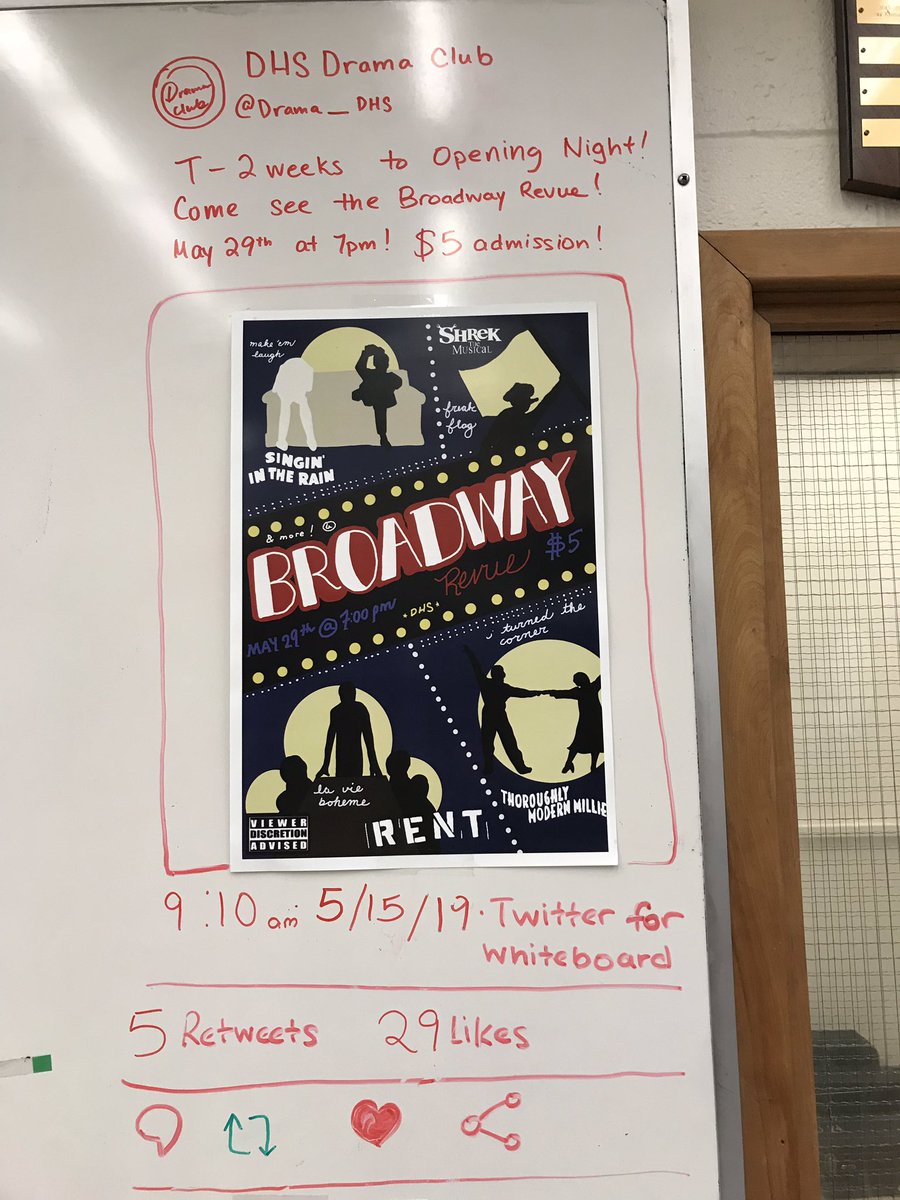 Drama
club
DHS Drama Club
@Drama_DHS
T-2 weeks to Opening Night!
Come see the Broadway Revue!
May 29th at 7pm! $5 admission!
make 'em
laugh
SINGIN'
IN THE RAIN
SHREK
THE
MUSICAL
freak
flag
& more!
BROADWAY
Revue $5
MAY 29th @ 7:00 pm
DHS
i turned the
corner
la vie
boheme
VIEWER
DISCRETION
ADVISED
RENT
THOROUGHLY
MODERN MILLIE
9:10 am 5/15/19 · Twitter for
whiteboard
5 Retweets 29 Likes